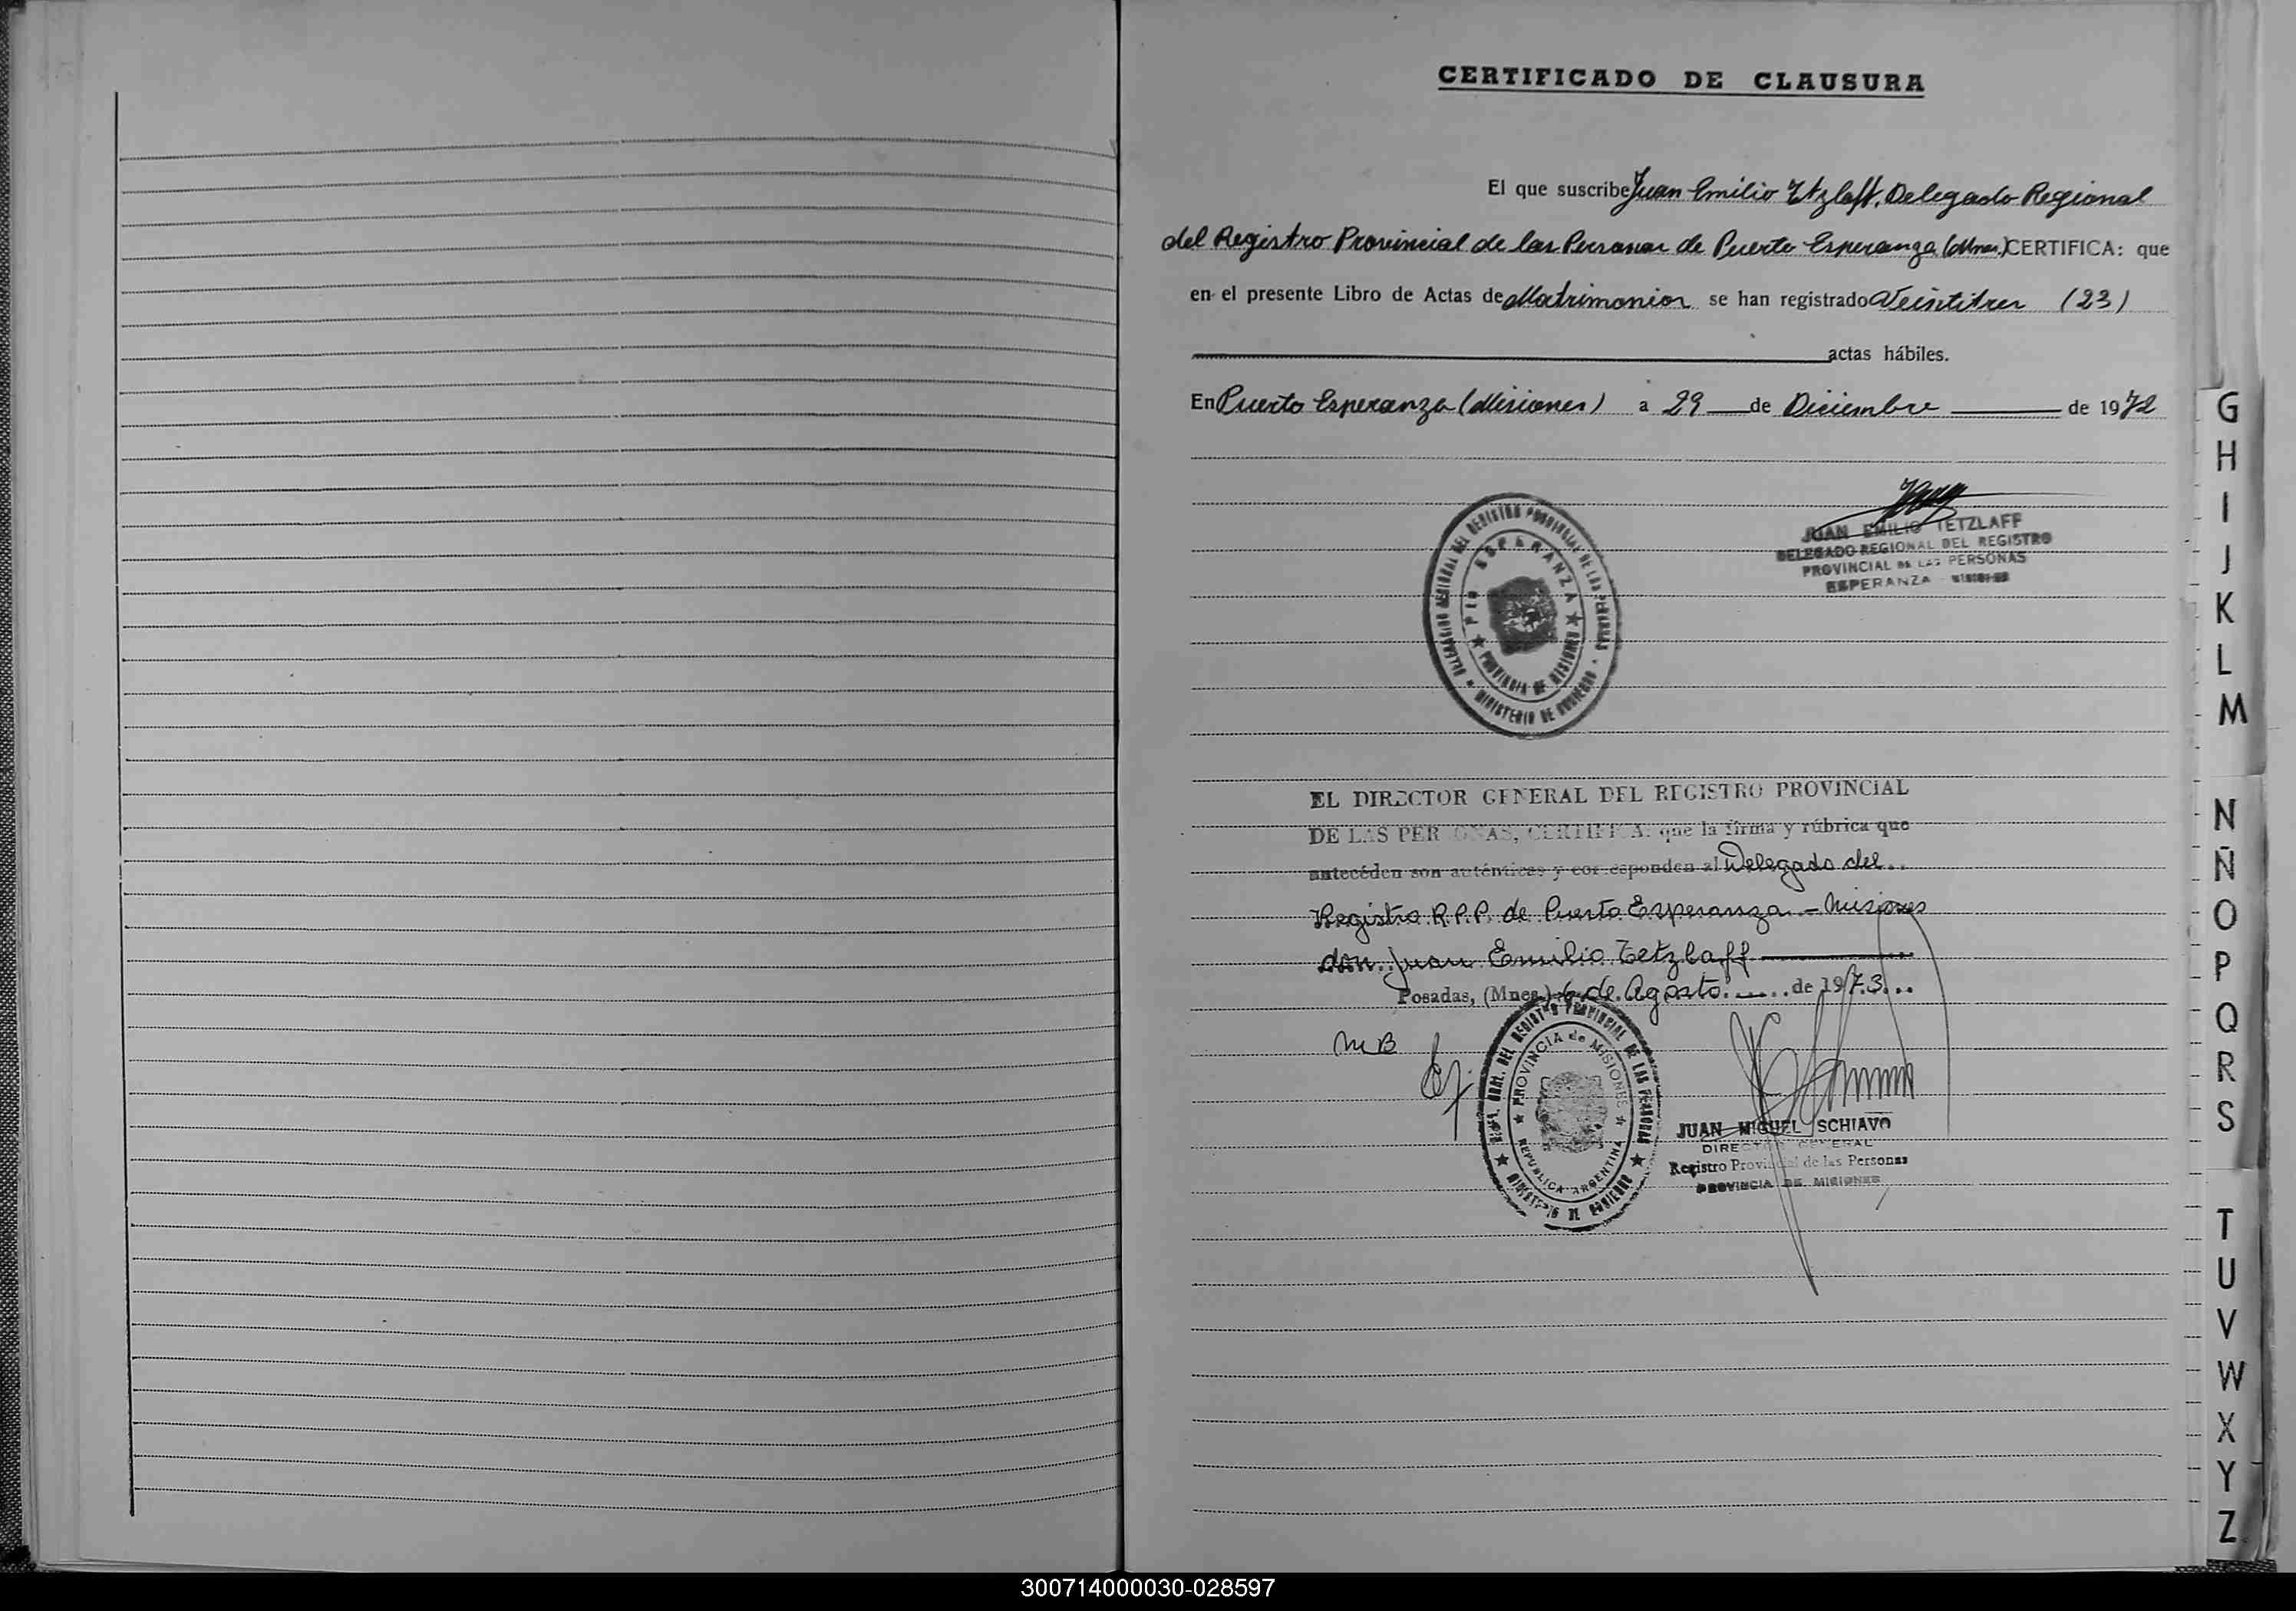 CERTIFICADO DE CLAUSURA
El que suscribe Juan Emilio Tetzlaff, Delegado Regional
del Registro Provincial de las Personas de Puerto Esperanza (Mnes.) CERTIFICA: que
en el presente Libro de Actas de Matrimonios se han registrado Veintitres (23)
actas hábiles.
En Puerto Esperanza (Misiones) a 29 de Diciembre de 1972
JUAN EMILIO TETZLAFF
DELEGADO REGIONAL DEL REGISTRO
PROVINCIAL DE LAS PERSONAS
ESPERANZA - MISIONES
DELEGACION REGIONAL DEL REGISTRO PROVINCIAL DE LAS PERSONAS
MINISTERIO DE GOBIERNO
PTO ESPERANZA
PROVINCIA DE MISIONES
EL DIRECTOR GENERAL DEL REGISTRO PROVINCIAL
DE LAS PERSONAS, CERTIFICA: que la firma y rúbrica que
antecéden son auténticas y corresponden al Delegado del
Registro R.P.P. de Puerto Esperanza - Misiones
don Juan Emilio Tetzlaff
Posadas, (Mnes.) 6 de Agosto de 1973
MB
GRAL. DEL REGISTRO PROVINCIAL DE LAS PERSONAS
MINISTERIO DE GOBIERNO
PROVINCIA de MISIONES
REPUBLICA ARGENTINA
JUAN MIGUEL SCHIAVO
DIRECTOR GENERAL
Registro Provincial de las Personas
PROVINCIA DE MISIONES
G
H
I
J
K
L
M
N
Ñ
O
P
Q
R
S
T
U
V
W
X
Y
Z
300714000030-028597